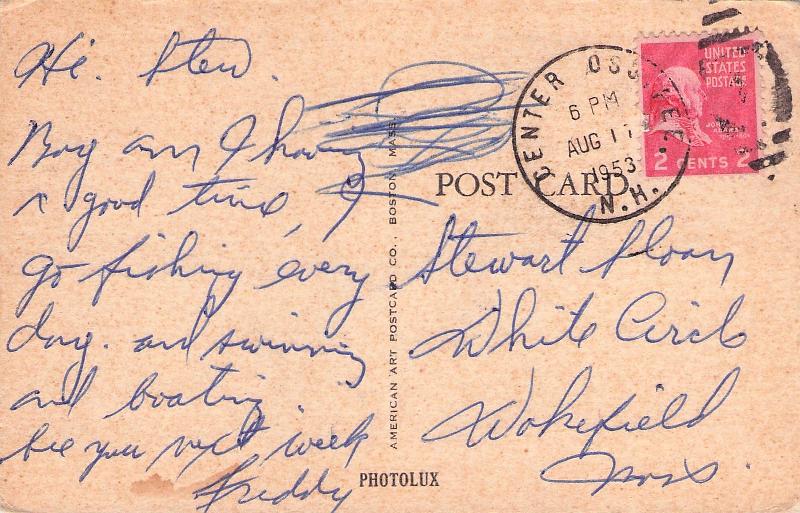 Hi. Stew.
Boy am I having
a good time, I
go fishing every
day. and swimming
and boating.
see you next week
Freddy
AMERICAN ART POSTCARD CO., BOSTON MASS.
PHOTOLUX
POST CARD
CENTER OSSIPEE.
6 PM
AUG 17
1953
N.H.
UNITED
STATES
POSTAGE
2 CENTS 2
Stewart Sloan
White Circle
Wakefield
Mass.